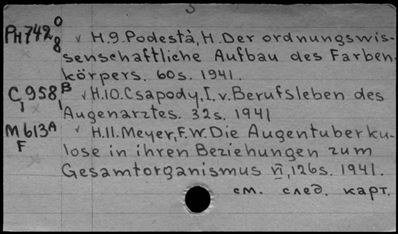 5
PH742 0/8 8 v H.9.Podestà,H.Der ordnungswis-
senschaftliche Aufbau des Farben-
körpers. 60s. 1941.
C958 B/1 1 v H.10.Csapody,I.v.Berufsleben des
Augenarztes. 32s. 1941
M613A F v H.11.Meyer,F.W.Die Augentuberku-
lose in ihren Beziehungen zum
Gesamtorganismus VI,126s. 1941.
см. след. карт.